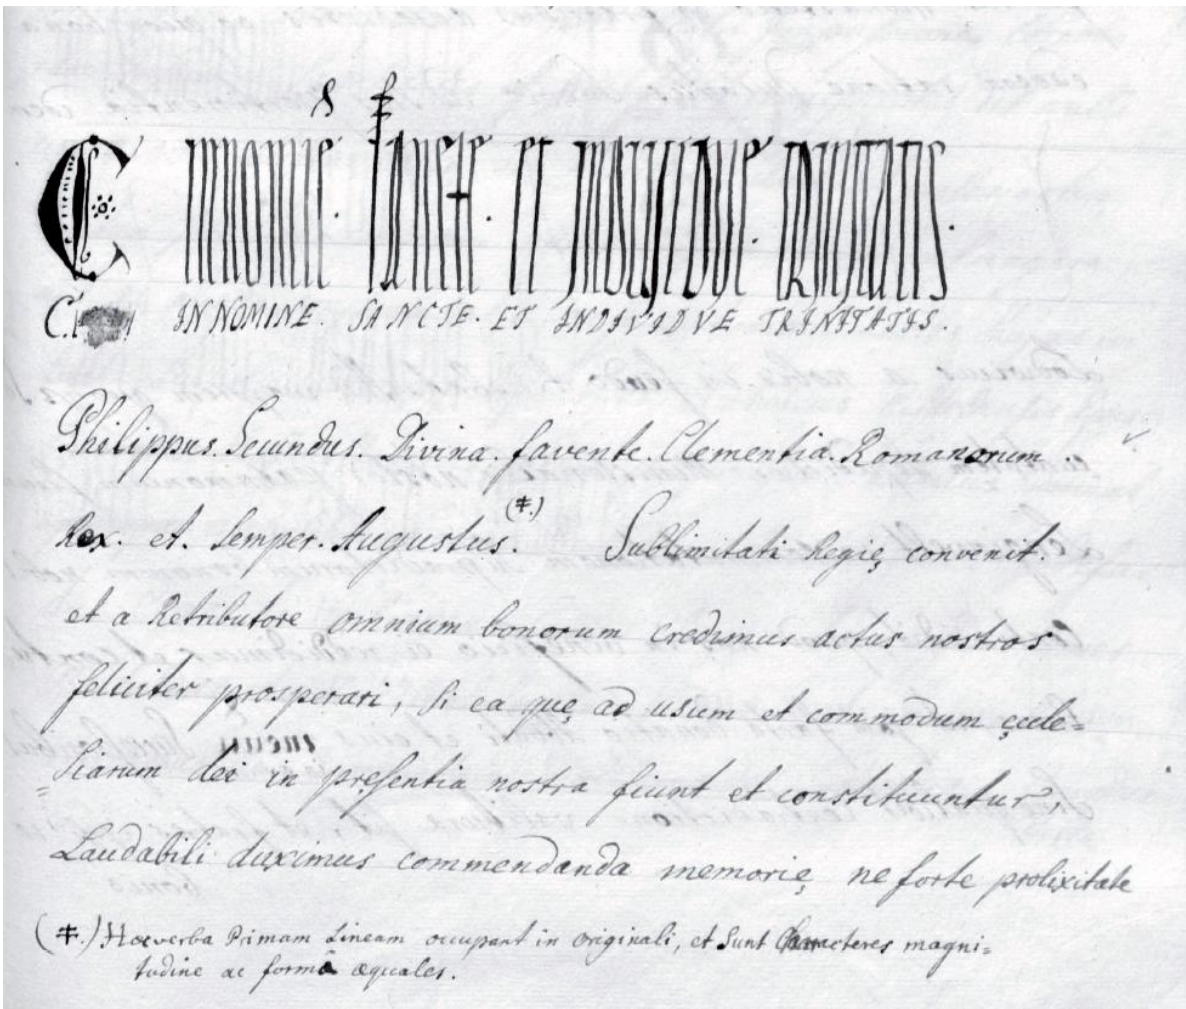 C INNOMINE. SANCTE. ET INDIVIDVE. TRINITATIS.
C. INNOMINE. SANCTE. ET INDIVIDVE TRINITATIS.
Philippus. Secundus. Divina. favente. Clementia. Romanorum
Rex. et. Semper. Augustus. (‡.) Sublimitati Regię convenit.
et a Retributore omnium bonorum credimus actus nostros
feliciter prosperari, Si ea quę ad usum et commodum ęccle=
=siarum dei in pręsentia nostra fiunt et constituuntur,
Laudabili duximus commendanda memorię ne forte prolixitate
(‡.) Hæc verba Primam Lineam occupant in originali, et Sunt Characteres magni=
tudine ac formâ æquales.